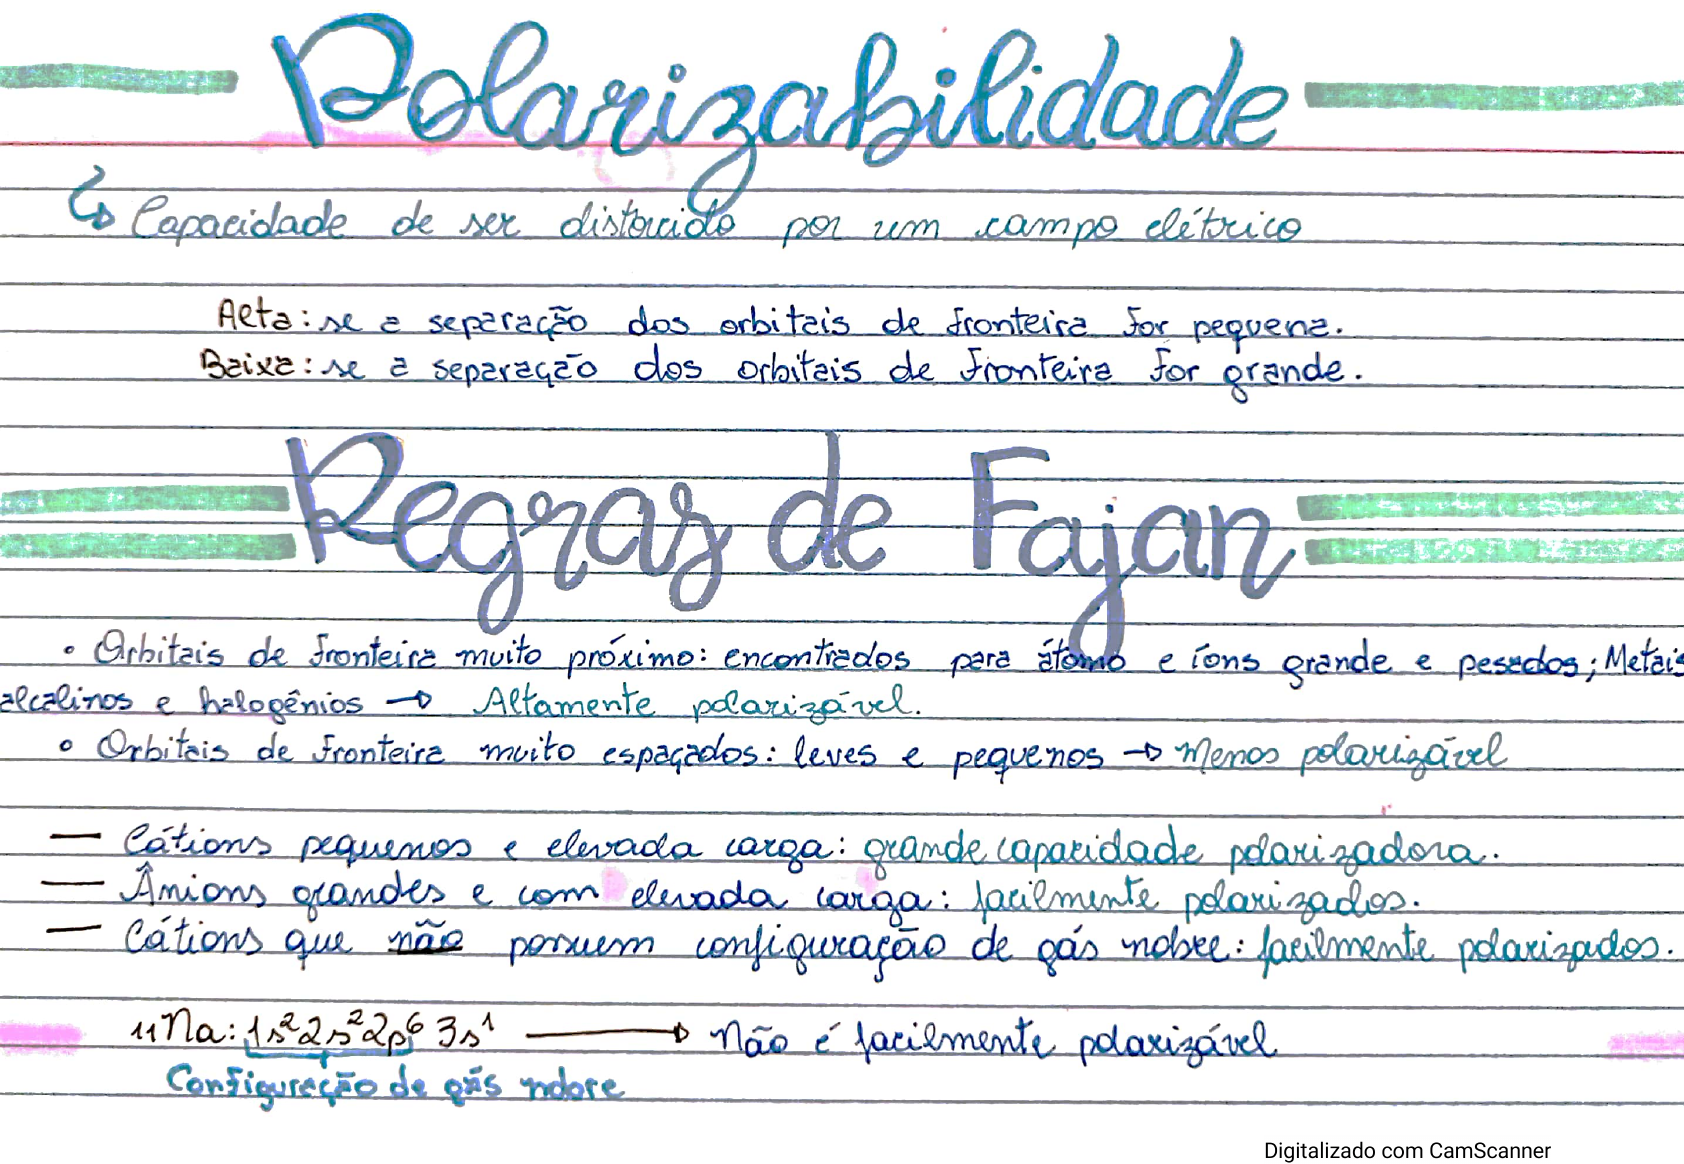 Polarizabilidade
Capacidade de ser distorcido por um campo elétrico
Alta: se a separação dos orbitais de fronteira for pequena.
Baixa: se a separação dos orbitais de fronteira for grande.
Regras de Fajan
• Orbitais de fronteira muito próximo: encontrados para átomo e íons grande e pesados; Metais
alcalinos e halogênios → Altamente polarizável.
• Orbitais de fronteira muito espaçados: leves e pequenos → Menos polarizável
— Cátions pequenos e elevada carga: grande capacidade polarizadora.
— Ânions grandes e com elevada carga: facilmente polarizados.
— Cátions que não possuem configuração de gás nobre: facilmente polarizados.
₁₁Na: 1s² 2s² 2p⁶ 3s¹ → Não é facilmente polarizável
Configuração de gás nobre
Digitalizado com CamScanner